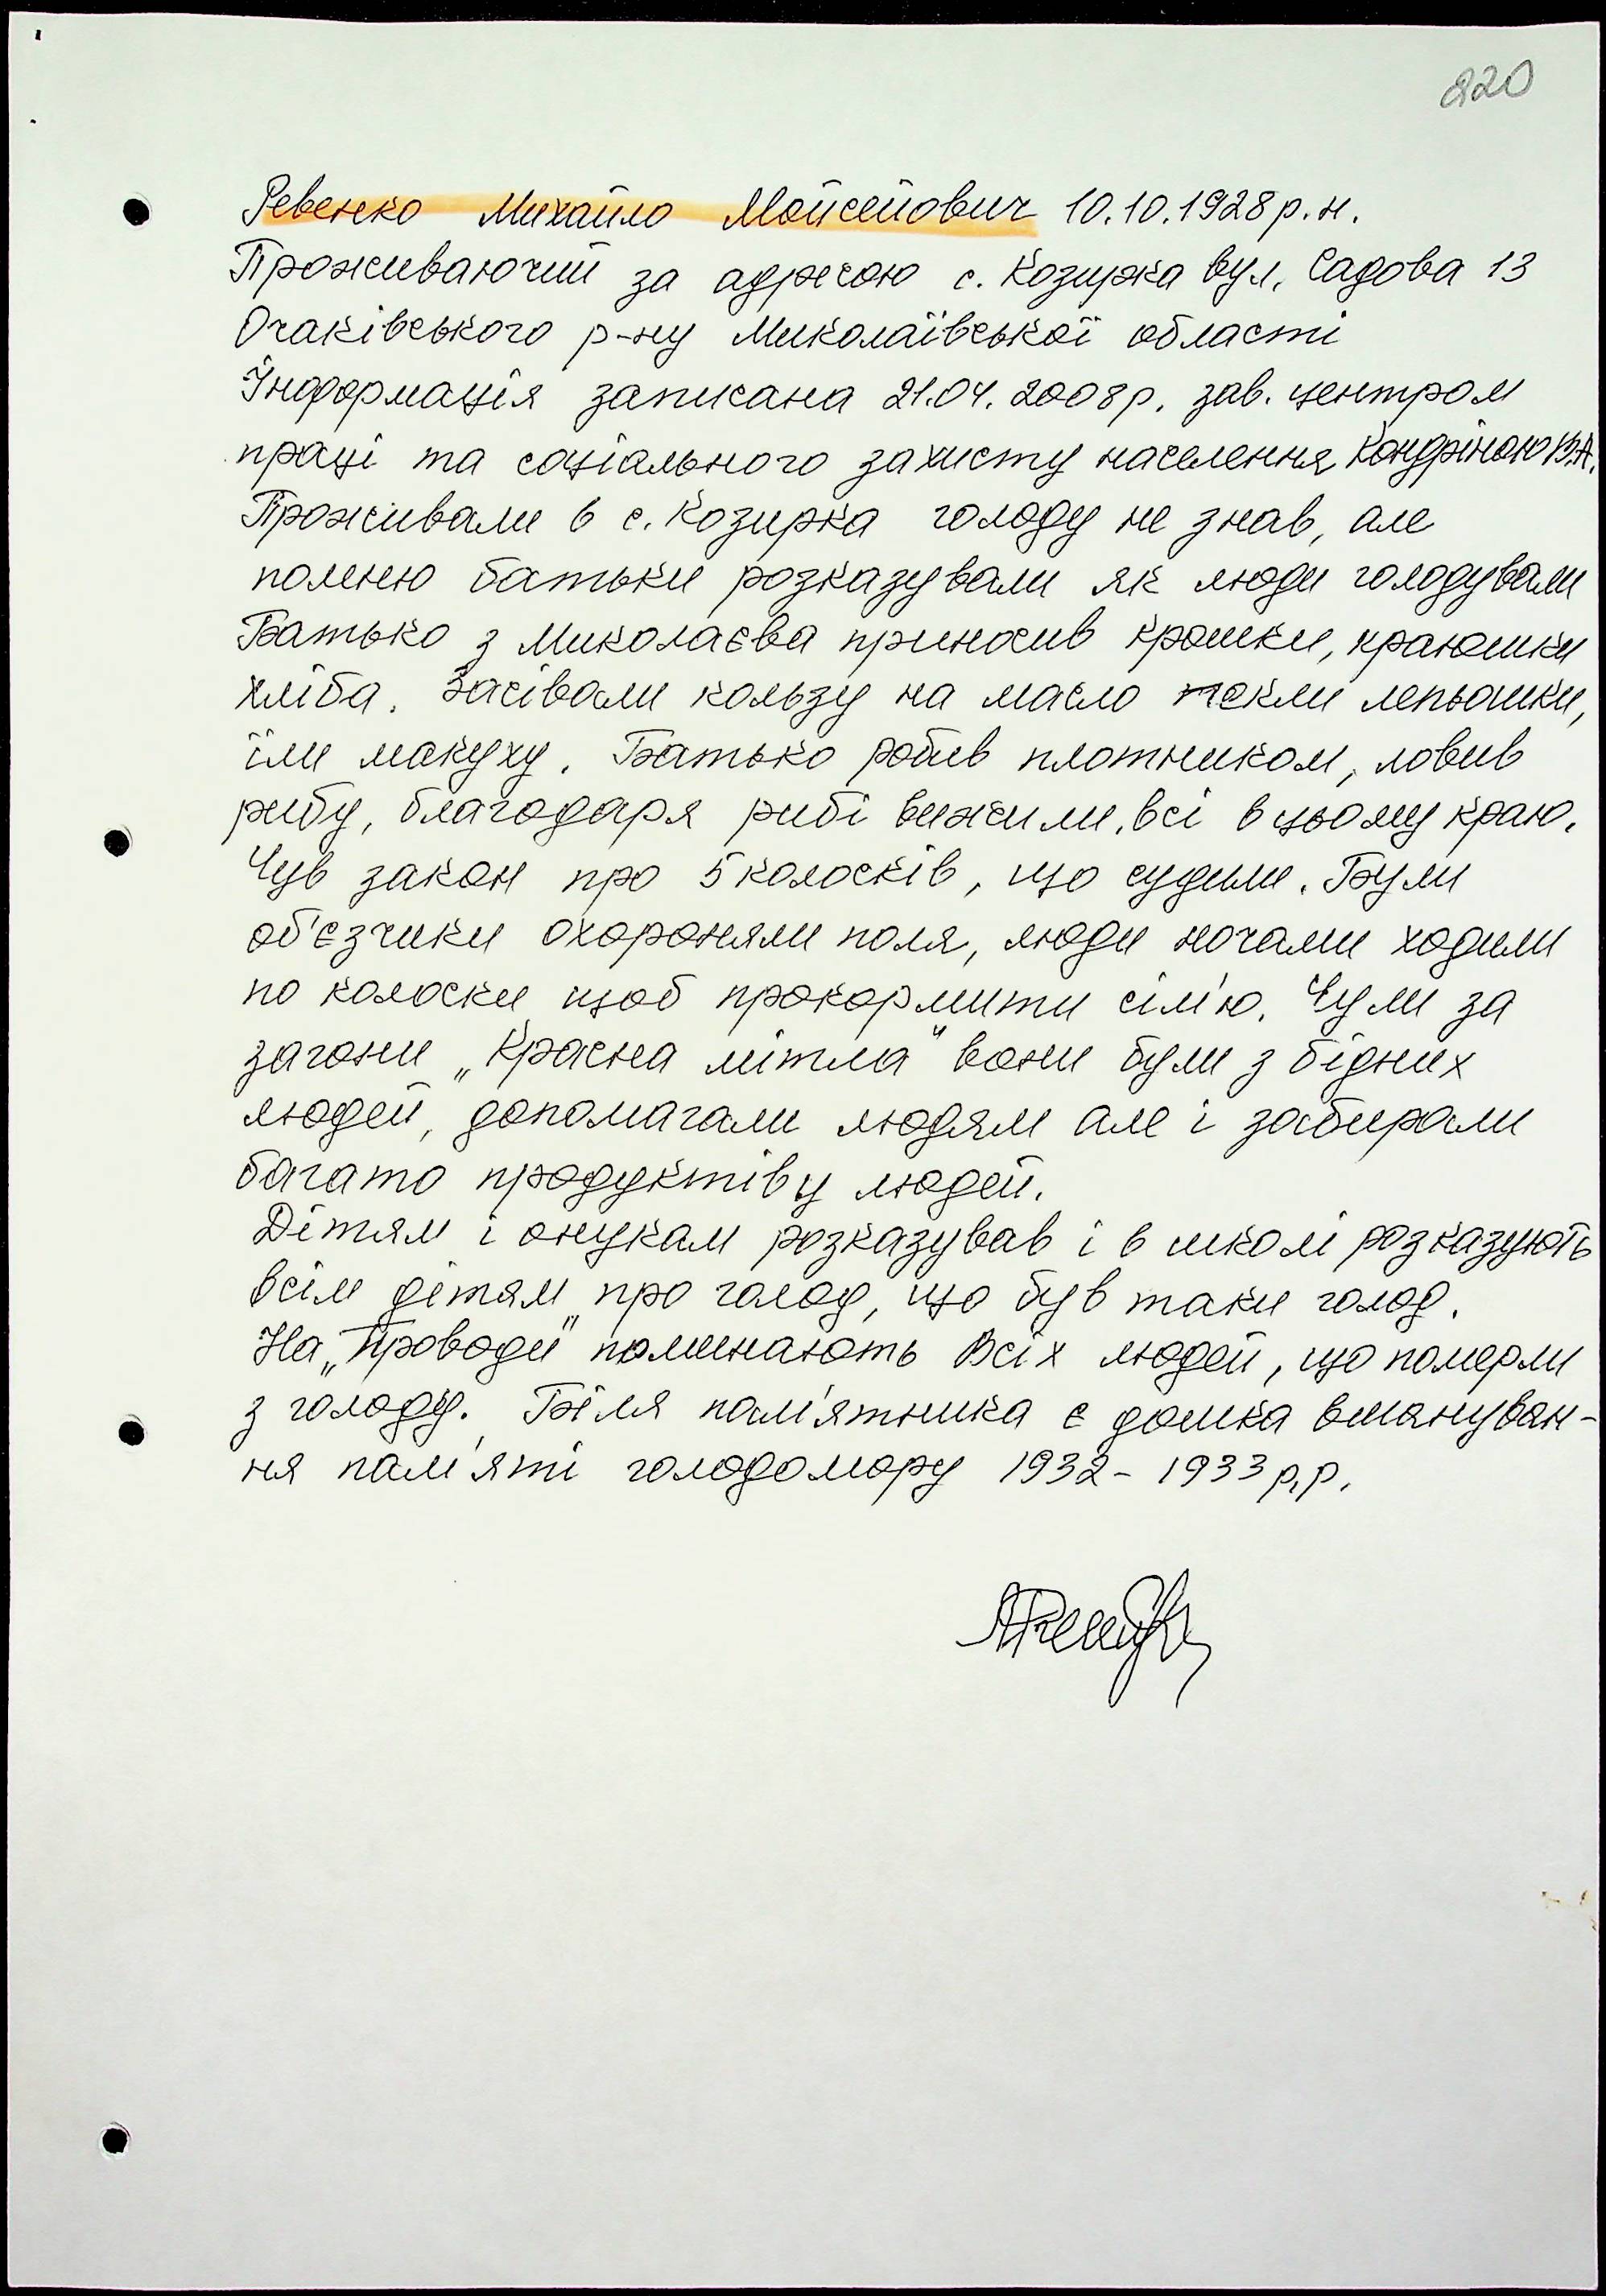 220
Ревенко Михайло Мойсейович 10.10.1928 р.н.
Проживаючий за адресою с. Козирка вул. Садова 13
Очаківського р-ну Миколаївської області
Інформація записана 21.04.2008р. зав. центром
праці та соціального захисту населення Кондріною В.А.
Проживали в с. Козирка голоду не знав, але
помню батьки розказували як люди голодували
Батько з Миколаєва приносив крошки, краюшки
хліба. Засівали кользу на масло пекли лепьошки,
їли макуху. Батько робив плотником, ловив
рибу, благодаря рибі вижили, всі в цьому краю.
Чув закон про 5 колосків, що судили. Були
об'єзчики охороняли поля, люди ночами ходили
по колоски щоб прокормити сім'ю. Чули за
загони „Красна мітла" вони були з бідних
людей, допомагали людям але і забирали
багато продуктів у людей.
Дітям і онукам розказував і в школі розказують
всім дітям про голод, що був таки голод.
На „Проводи" поминають всіх людей, що померли
з голоду. Біля пам'ятника є дошка вшануван-
ня пам'яті голодомору 1932 - 1933 р.р.